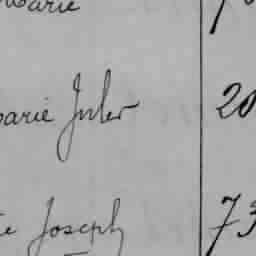 Marie
Marie Jules 20
Joseph 73